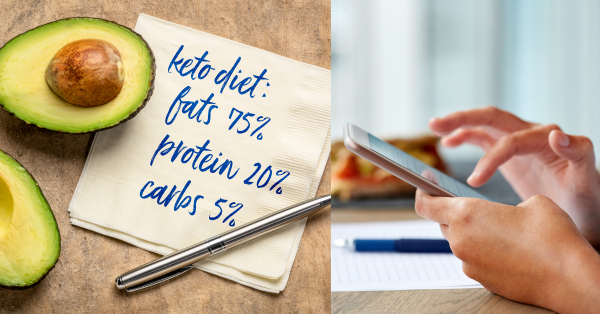 keto diet:
fats 75%
protein 20%
carbs 5%